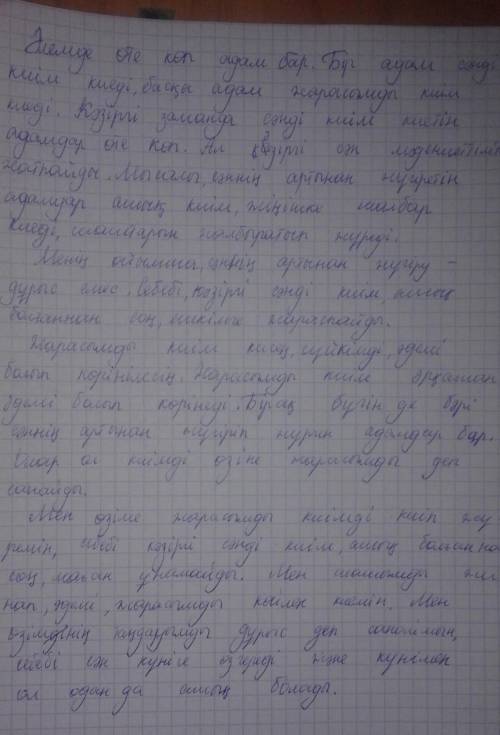 Әлемде өте көп адам бар. Бір адам сәнді
киім киеді, басқа адам жарасымды киім
киеді. Кәзіргі заманда сәнді киім киетін
адамдар өте көп. Ал кәзіргі сән мәдениетімізге
жатпайды. Мысалы, сәннің артынан жүгіретін
адамдар ашық киім, жіңішке шалбар
киеді, шаштарын жалбыратып жүреді.
Менің ойымша, сәннің артынан жүгіру -
дұрыс емес, себебі, кәзіргі сәнді киім, ашық
болғаннан соң, ешкімге жараспайды.
Жарасымды киім кисең, сүйкімді, әдемі
болып көрінілесің. Жарасымды киім әрқашан
әдемі болып көрінеді. Бірақ бүгін де бәрі
сәннің артынан жүгіріп жүрген адамдар бар.
Олар ол киімді өзіне жарасымды деп
санайды.
Мен өзіме жарасымды киімді киіп жү
ремін, себебі кәзіргі сәнді киім, ашық болғанна
соң, маған ұнамайды. Мен шашымды жи
нап, әдемі, жарасымды көйлек киемін. Мен
өзімденің таңдауымды дұрыс деп санаймын,
себебі сән күнге өзгереді және күнімен
ол одан да ашық болады.